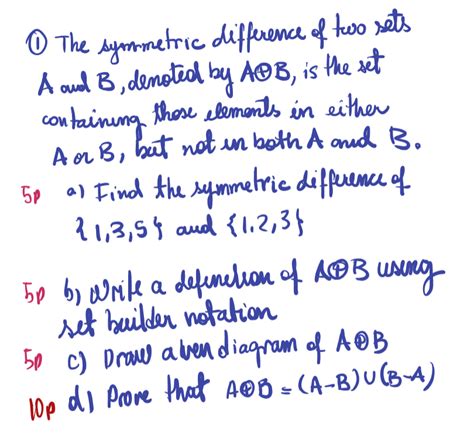 ① The symmetric difference of two sets
A and B, denoted by A⊕B, is the set
containing those elements in either
A or B, but not in both A and B.
5p a) Find the symmetric difference of
{1,3,5} and {1,2,3}
5p b) Write a definetion of A⊕B using
set builder notation
5p c) Draw a ven diagram of A⊕B
10p d) Prove that A⊕B = (A-B)∪(B-A)